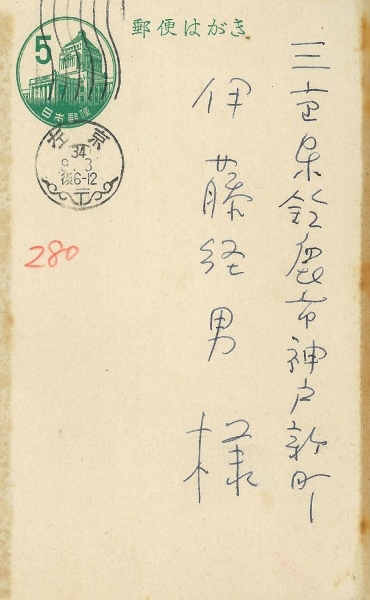 郵便はがき
5
日本郵便
京
34
9.3
後6-12
三重県鈴鹿市神戸新町
伊藤経男様
280